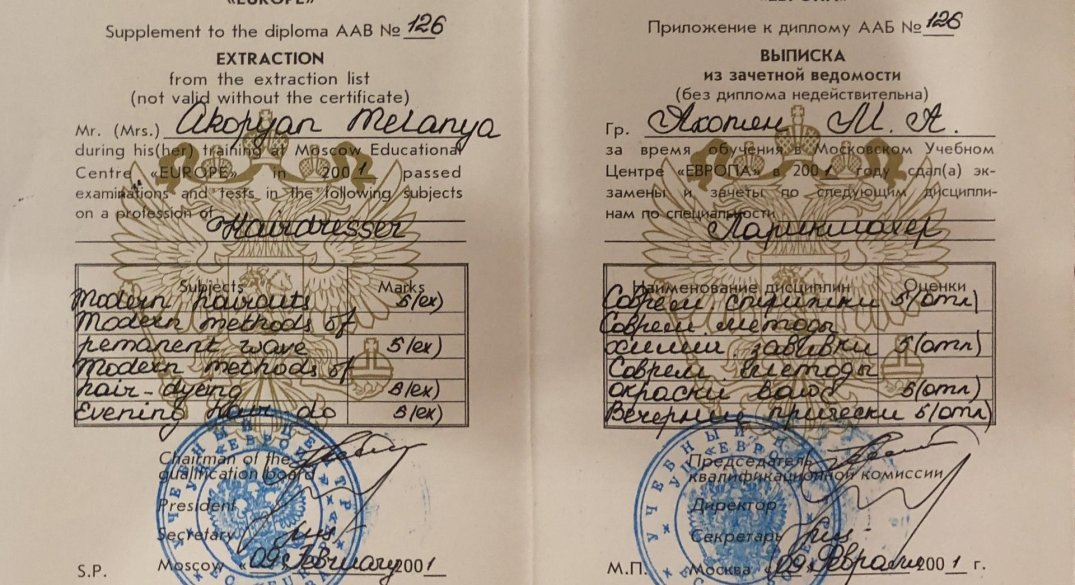 «EUROPE»
Supplement to the diploma ААВ № 126
EXTRACTION
from the extraction list
(not valid without the certificate)
Mr. (Mrs.) Akopyan Melanya
during his(her) training at Moscow Educational
Centre «EUROPE» in 2001 passed
examinations and tests in the following subjects
on a profession of Hairdresser
Subjects Marks
Modern haircuts 5(ex)
Modern methods of
pemanent wave 5(ex)
Modern methods of
hair-dyeing 5(ex)
Evening hair do 5(ex)
Chairman of the
qualification board
President
Secretary
S.P. Moscow «09» February 2001
«ЕВРОПА»
Приложение к диплому ААБ № 126
ВЫПИСКА
из зачетной ведомости
(без диплома недействительна)
Гр. Акопян М. А.
за время обучения в Московском Учебном
Центре «ЕВРОПА» в 2001 году сдал(а) эк-
замены и зачеты по следующим дисципли-
нам по специальности
Парикмахер
Наименование дисциплин Оценки
Соврем стрижки 5(отл)
Соврем. методы
химии. завивки 5(отл)
Соврем. методы
окраски волос 5(отл)
Вечерние прически 5(отл)
Председатель
квалификационной комиссии
Директор
Секретарь
М.П. Москва «09» Февраля 2001 г.